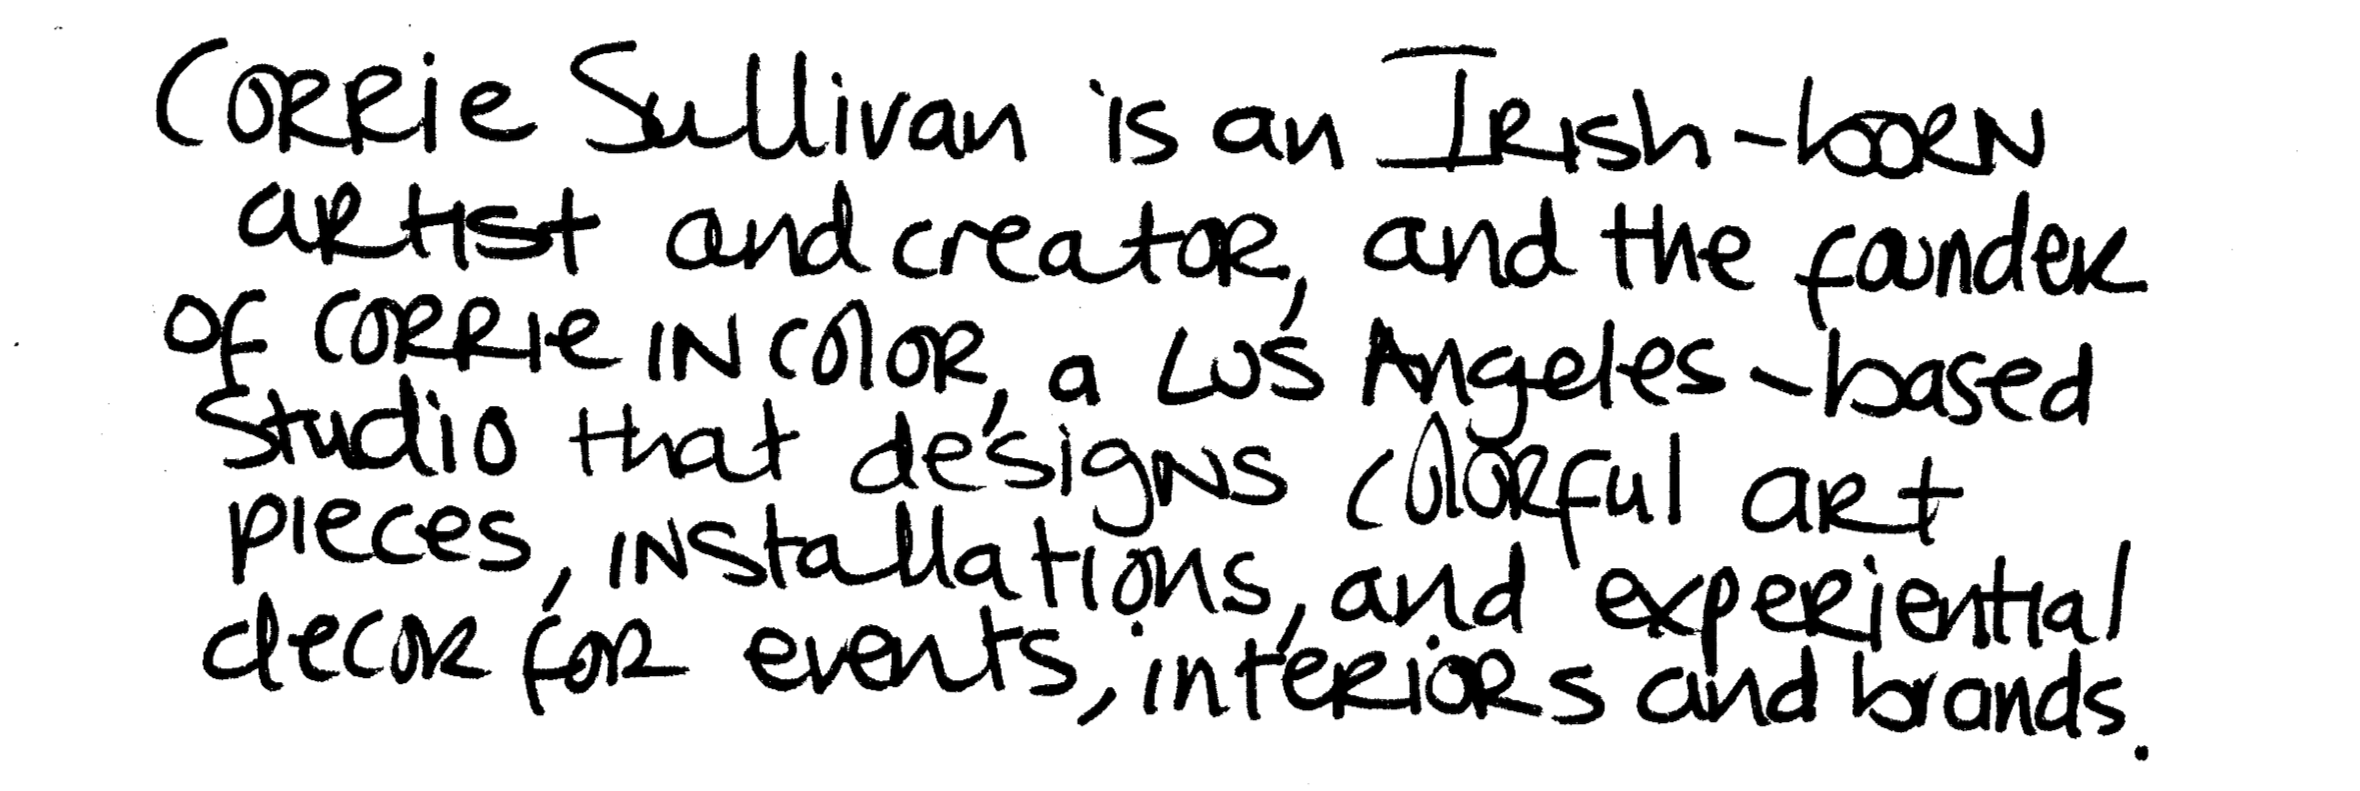 Corrie Sullivan is an Irish-born
artist and creator, and the founder
of Corrie in Color, a Los Angeles-based
Studio that designs colorful art
pieces, installations, and experiential
decor for events, interiors and brands.